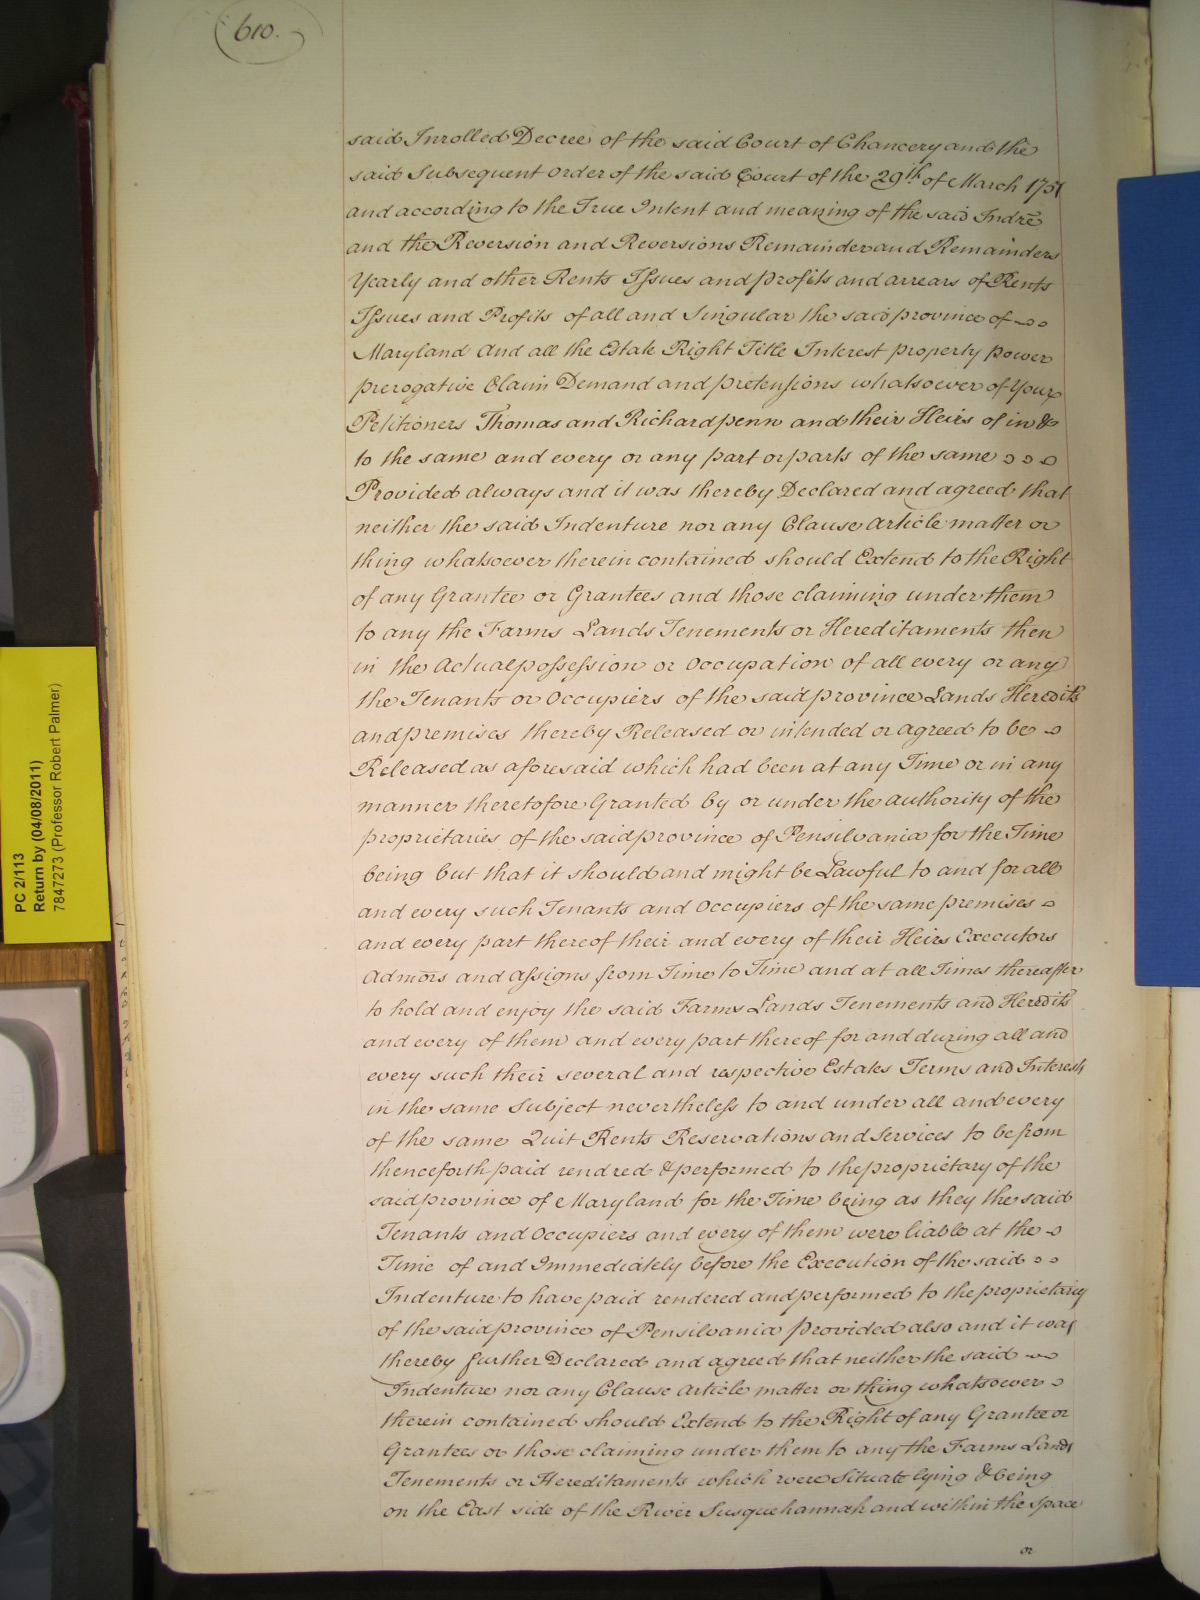 610.
said Inrolled Decree of the said Court of Chancery and the
said Subsequent order of the said Court of the 29th of March 1751
and according to the True Intent and meaning of the said Indre
and the Reversion and Reversions Remainder and Remainders
Yearly and other Rents Issues and profits and arrears of Rents
Issues and Profits of all and Singular the said province of
Maryland And all the Estate Right Title Interest property power
prerogative Claim Demand and pretensions whatsoever of Your
Petitioners Thomas and Richard penn and their Heirs of in &
to the same and every or any part or parts of the same
Provided always and it was thereby Declared and agreed that
neither the said Indenture nor any Clause article matter or
thing whatsoever therein contained should Extend to the Right
of any Grantee or Grantees and those claiming under them
to any the Farms Lands Tenements or Hereditaments then
in the Actual possession or Occupation of all every or any
the Tenants or Occupiers of the said province Lands Heredits
and premises thereby Released or intended or agreed to be
Released as aforesaid which had been at any Time or in any
manner theretofore Granted by or under the authority of the
proprietaries of the said province of Pensilvania for the Time
being but that it should and might be Lawful to and for all
and every such Tenants and Occupiers of the same premises
and every part thereof their and every of their Heirs Executors
Admors and assigns from Time to Time and at all Times thereafter
to hold and enjoy the said Farms Lands Tenements and Heredits
and every of them and every part thereof for and during all and
every such their several and respective Estates Terms and Interests
in the same Subject nevertheless to and under all and every
of the same Quit Rents Reservations and Services to be from
thenceforth paid rendred & performed to the proprietary of the
said province of Maryland for the Time being as they the said
Tenants and Occupiers and every of them were liable at the
Time of and Immediately before the Execution of the said
Indenture to have paid rendered and performed to the proprietary
of the said province of Pensilvania provided also and it was
thereby further Declared and agreed that neither the said
Indenture nor any Clause article matter or thing whatsoever
therein contained should Extend to the Right of any Grantee or
Grantees or those claiming under them to any the Farms Lands
Tenements or Hereditaments which were Situate lying & being
on the East side of the River Susquehannah and within the space
or
PC 2/113
Return by (04/08/2011)
7847273 (Professor Robert Palmer)